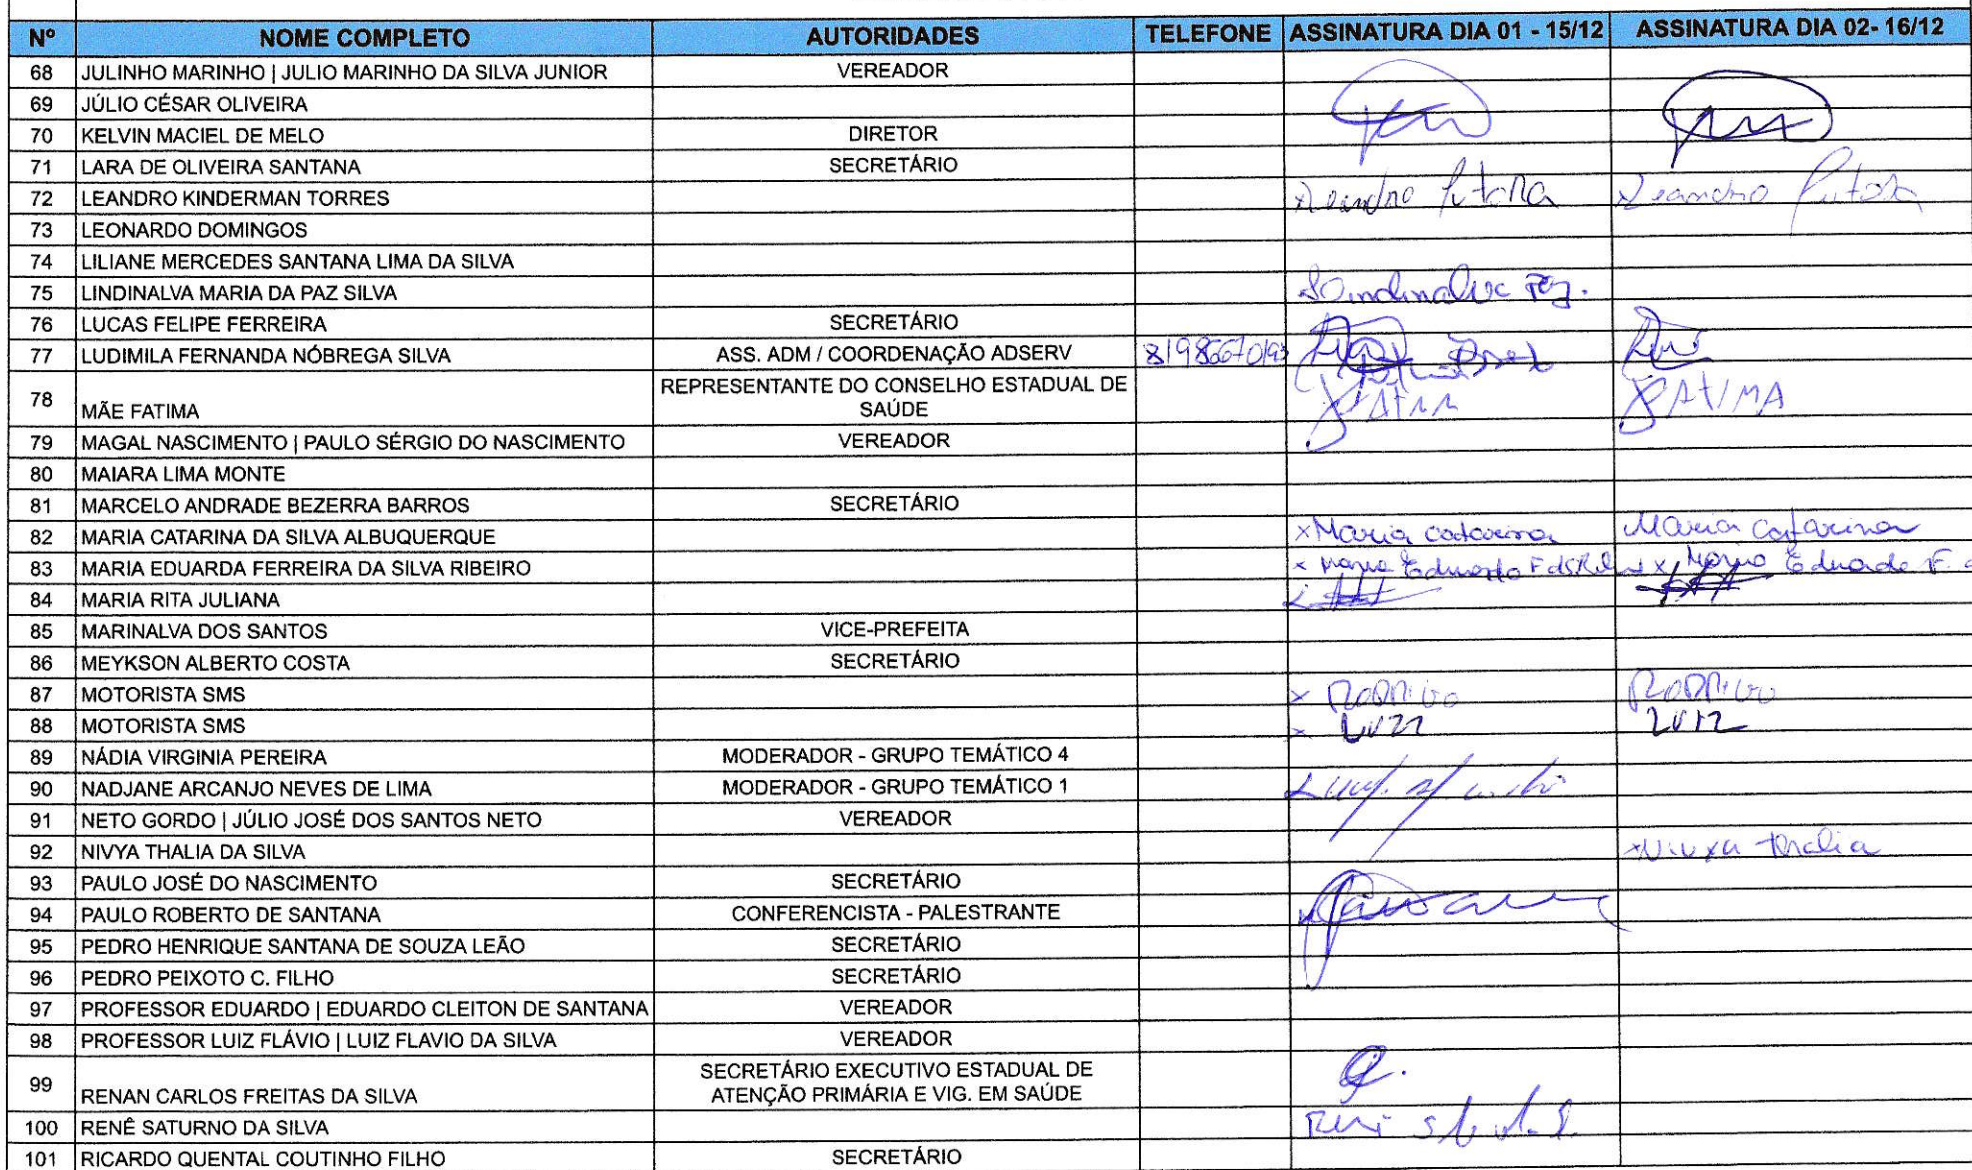 Nº NOME COMPLETO AUTORIDADES TELEFONE ASSINATURA DIA 01 - 15/12 ASSINATURA DIA 02- 16/12
68 JULINHO MARINHO | JULIO MARINHO DA SILVA JUNIOR VEREADOR
69 JÚLIO CÉSAR OLIVEIRA
70 KELVIN MACIEL DE MELO DIRETOR
71 LARA DE OLIVEIRA SANTANA SECRETÁRIO
72 LEANDRO KINDERMAN TORRES Leandro Leandro
73 LEONARDO DOMINGOS
74 LILIANE MERCEDES SANTANA LIMA DA SILVA
75 LINDINALVA MARIA DA PAZ SILVA Lindinalva Paz.
76 LUCAS FELIPE FERREIRA SECRETÁRIO
77 LUDIMILA FERNANDA NÓBREGA SILVA ASS. ADM / COORDENAÇÃO ADSERV
78 MÃE FATIMA REPRESENTANTE DO CONSELHO ESTADUAL DE SAÚDE FATIMA
79 MAGAL NASCIMENTO | PAULO SÉRGIO DO NASCIMENTO VEREADOR
80 MAIARA LIMA MONTE
81 MARCELO ANDRADE BEZERRA BARROS SECRETÁRIO
82 MARIA CATARINA DA SILVA ALBUQUERQUE x Maria Catarina Maria Catarina
83 MARIA EDUARDA FERREIRA DA SILVA RIBEIRO x Maria Eduarda x Maria Eduarda F.
84 MARIA RITA JULIANA
85 MARINALVA DOS SANTOS VICE-PREFEITA
86 MEYKSON ALBERTO COSTA SECRETÁRIO
87 MOTORISTA SMS x RODRIGO RODRIGO
88 MOTORISTA SMS x LUIZ LUIZ
89 NÁDIA VIRGINIA PEREIRA MODERADOR - GRUPO TEMÁTICO 4
90 NADJANE ARCANJO NEVES DE LIMA MODERADOR - GRUPO TEMÁTICO 1
91 NETO GORDO | JÚLIO JOSÉ DOS SANTOS NETO VEREADOR
92 NIVYA THALIA DA SILVA x Nivya Thalia
93 PAULO JOSÉ DO NASCIMENTO SECRETÁRIO
94 PAULO ROBERTO DE SANTANA CONFERENCISTA - PALESTRANTE
95 PEDRO HENRIQUE SANTANA DE SOUZA LEÃO SECRETÁRIO
96 PEDRO PEIXOTO C. FILHO SECRETÁRIO
97 PROFESSOR EDUARDO | EDUARDO CLEITON DE SANTANA VEREADOR
98 PROFESSOR LUIZ FLÁVIO | LUIZ FLAVIO DA SILVA VEREADOR
99 RENAN CARLOS FREITAS DA SILVA SECRETÁRIO EXECUTIVO ESTADUAL DE ATENÇÃO PRIMÁRIA E VIG. EM SAÚDE
100 RENÊ SATURNO DA SILVA
101 RICARDO QUENTAL COUTINHO FILHO SECRETÁRIO